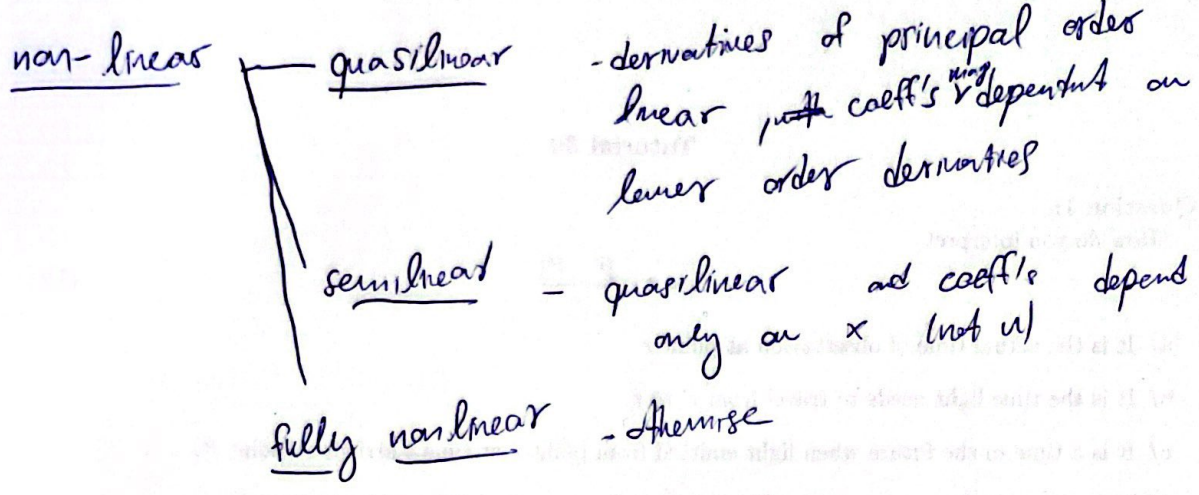 non-linear quasilinear - derivatives of principal order
linear, coeff's may dependent on
lower order derivatives
semilinear - quasilinear and coeff's depend
only on x (not u)
fully nonlinear - otherwise